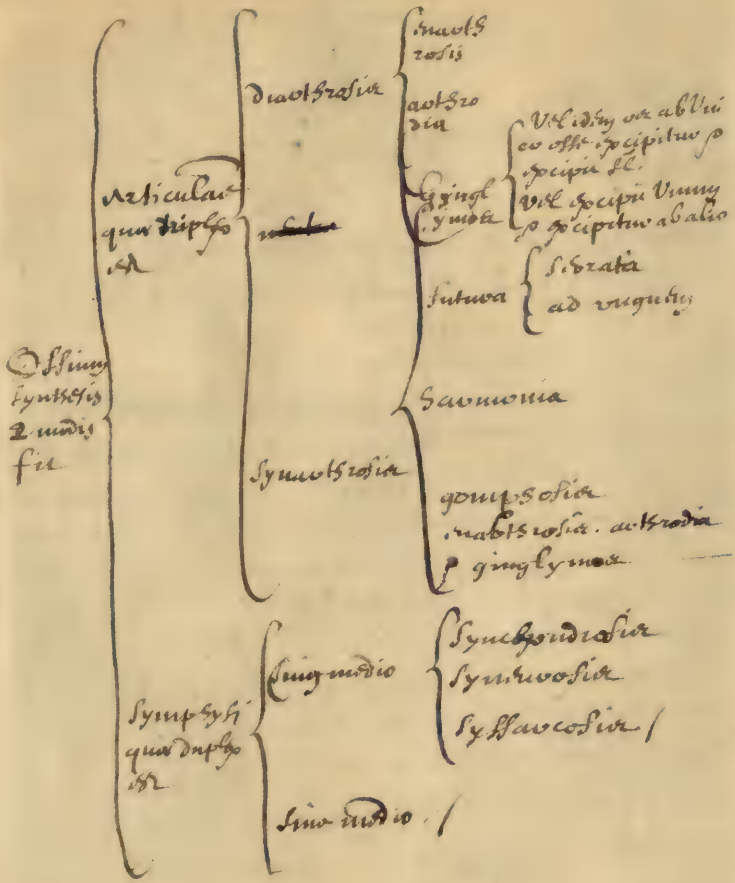 Ossium
synthesis
2 modis
fit
Articulae
quae triplex
est
diarthrosin
enarth
rosis
arthro
dia
Gingl
ymon
Vel idem os ab Uni
co osse excipitur &
excipit
Vel excipit Unum
& excipitur ab alio
Synarthrosin
sutura
serrata
ad unguem
harmonia
gomphosin
enarthrosin. arthrodia
& ginglymon
Symphysi
quae duplex
est
cum medio
Synchondrosin
Synneurosin
Syssarcosin /
sine medio. /